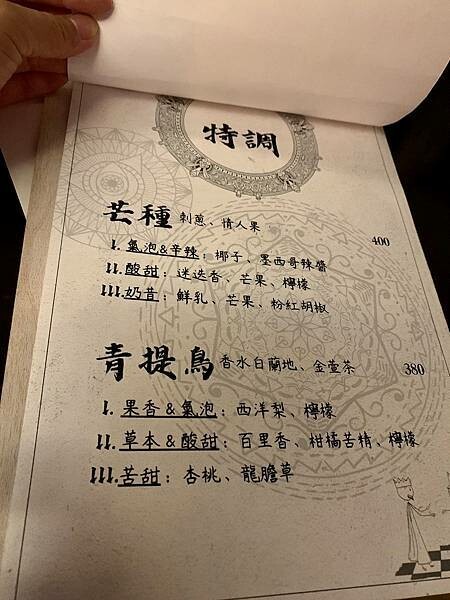 特調
芒種 刺蔥、情人果 400
I. 氣泡&辛辣：椰子、墨西哥辣醬
II. 酸甜：迷迭香、芒果、檸檬
III. 奶昔：鮮乳、芒果、粉紅胡椒
青提鳥 香水白蘭地、金萱茶 380
I. 果香&氣泡：西洋梨、檸檬
II. 草本&酸甜：百里香、柑橘苦精、檸檬
III. 苦甜：杏桃、龍膽草